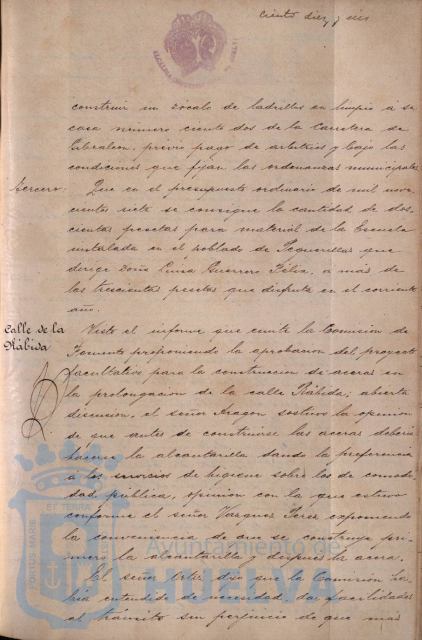 Ciento diez y seis
construir un zócalo de ladrillos en limpio á su
casa número ciento dos de la Carretera de
Gibraleon, previo pago de arbitrios y bajo las
condiciones que fijan las ordenanzas municipales
Tercero: Que en el presupuesto ordinario de mil nove-
cientos siete se consigne la cantidad de dos-
cientas pesetas para material de la Escuela
instalada en el poblado de Peguerillas que
dirige Doña Luisa Guerrero Félix, á más de
las trescientas pesetas que disfruta en el corriente
año.
Calle de la
Rábida
Visto el informe que emite la Comisión de
Fomento proponiendo la aprobacion del proyecto
facultativo para la construccion de aceras en
la prolongacion de la calle Rábida; abierta
discusión, el señor Aragon sostuvo la opinion
de que antes de construirse las aceras deberia
hacerse la alcantarilla dando la preferencia
á los servicios de higiene sobre los de comodi-
dad pública, opinion con la que estuvo
conforme el señor Vazquez Perez exponiendo
la conveniencia de que se construya pri-
mero la alcantarilla y después la acera.
El señor dijo que la Comisión ha-
bía entendido de necesidad dar facilidades
al tránsito sin perjuicio de que más
Ayuntamiento de
HUELVA
PORTUS MARIS
ET TERRA